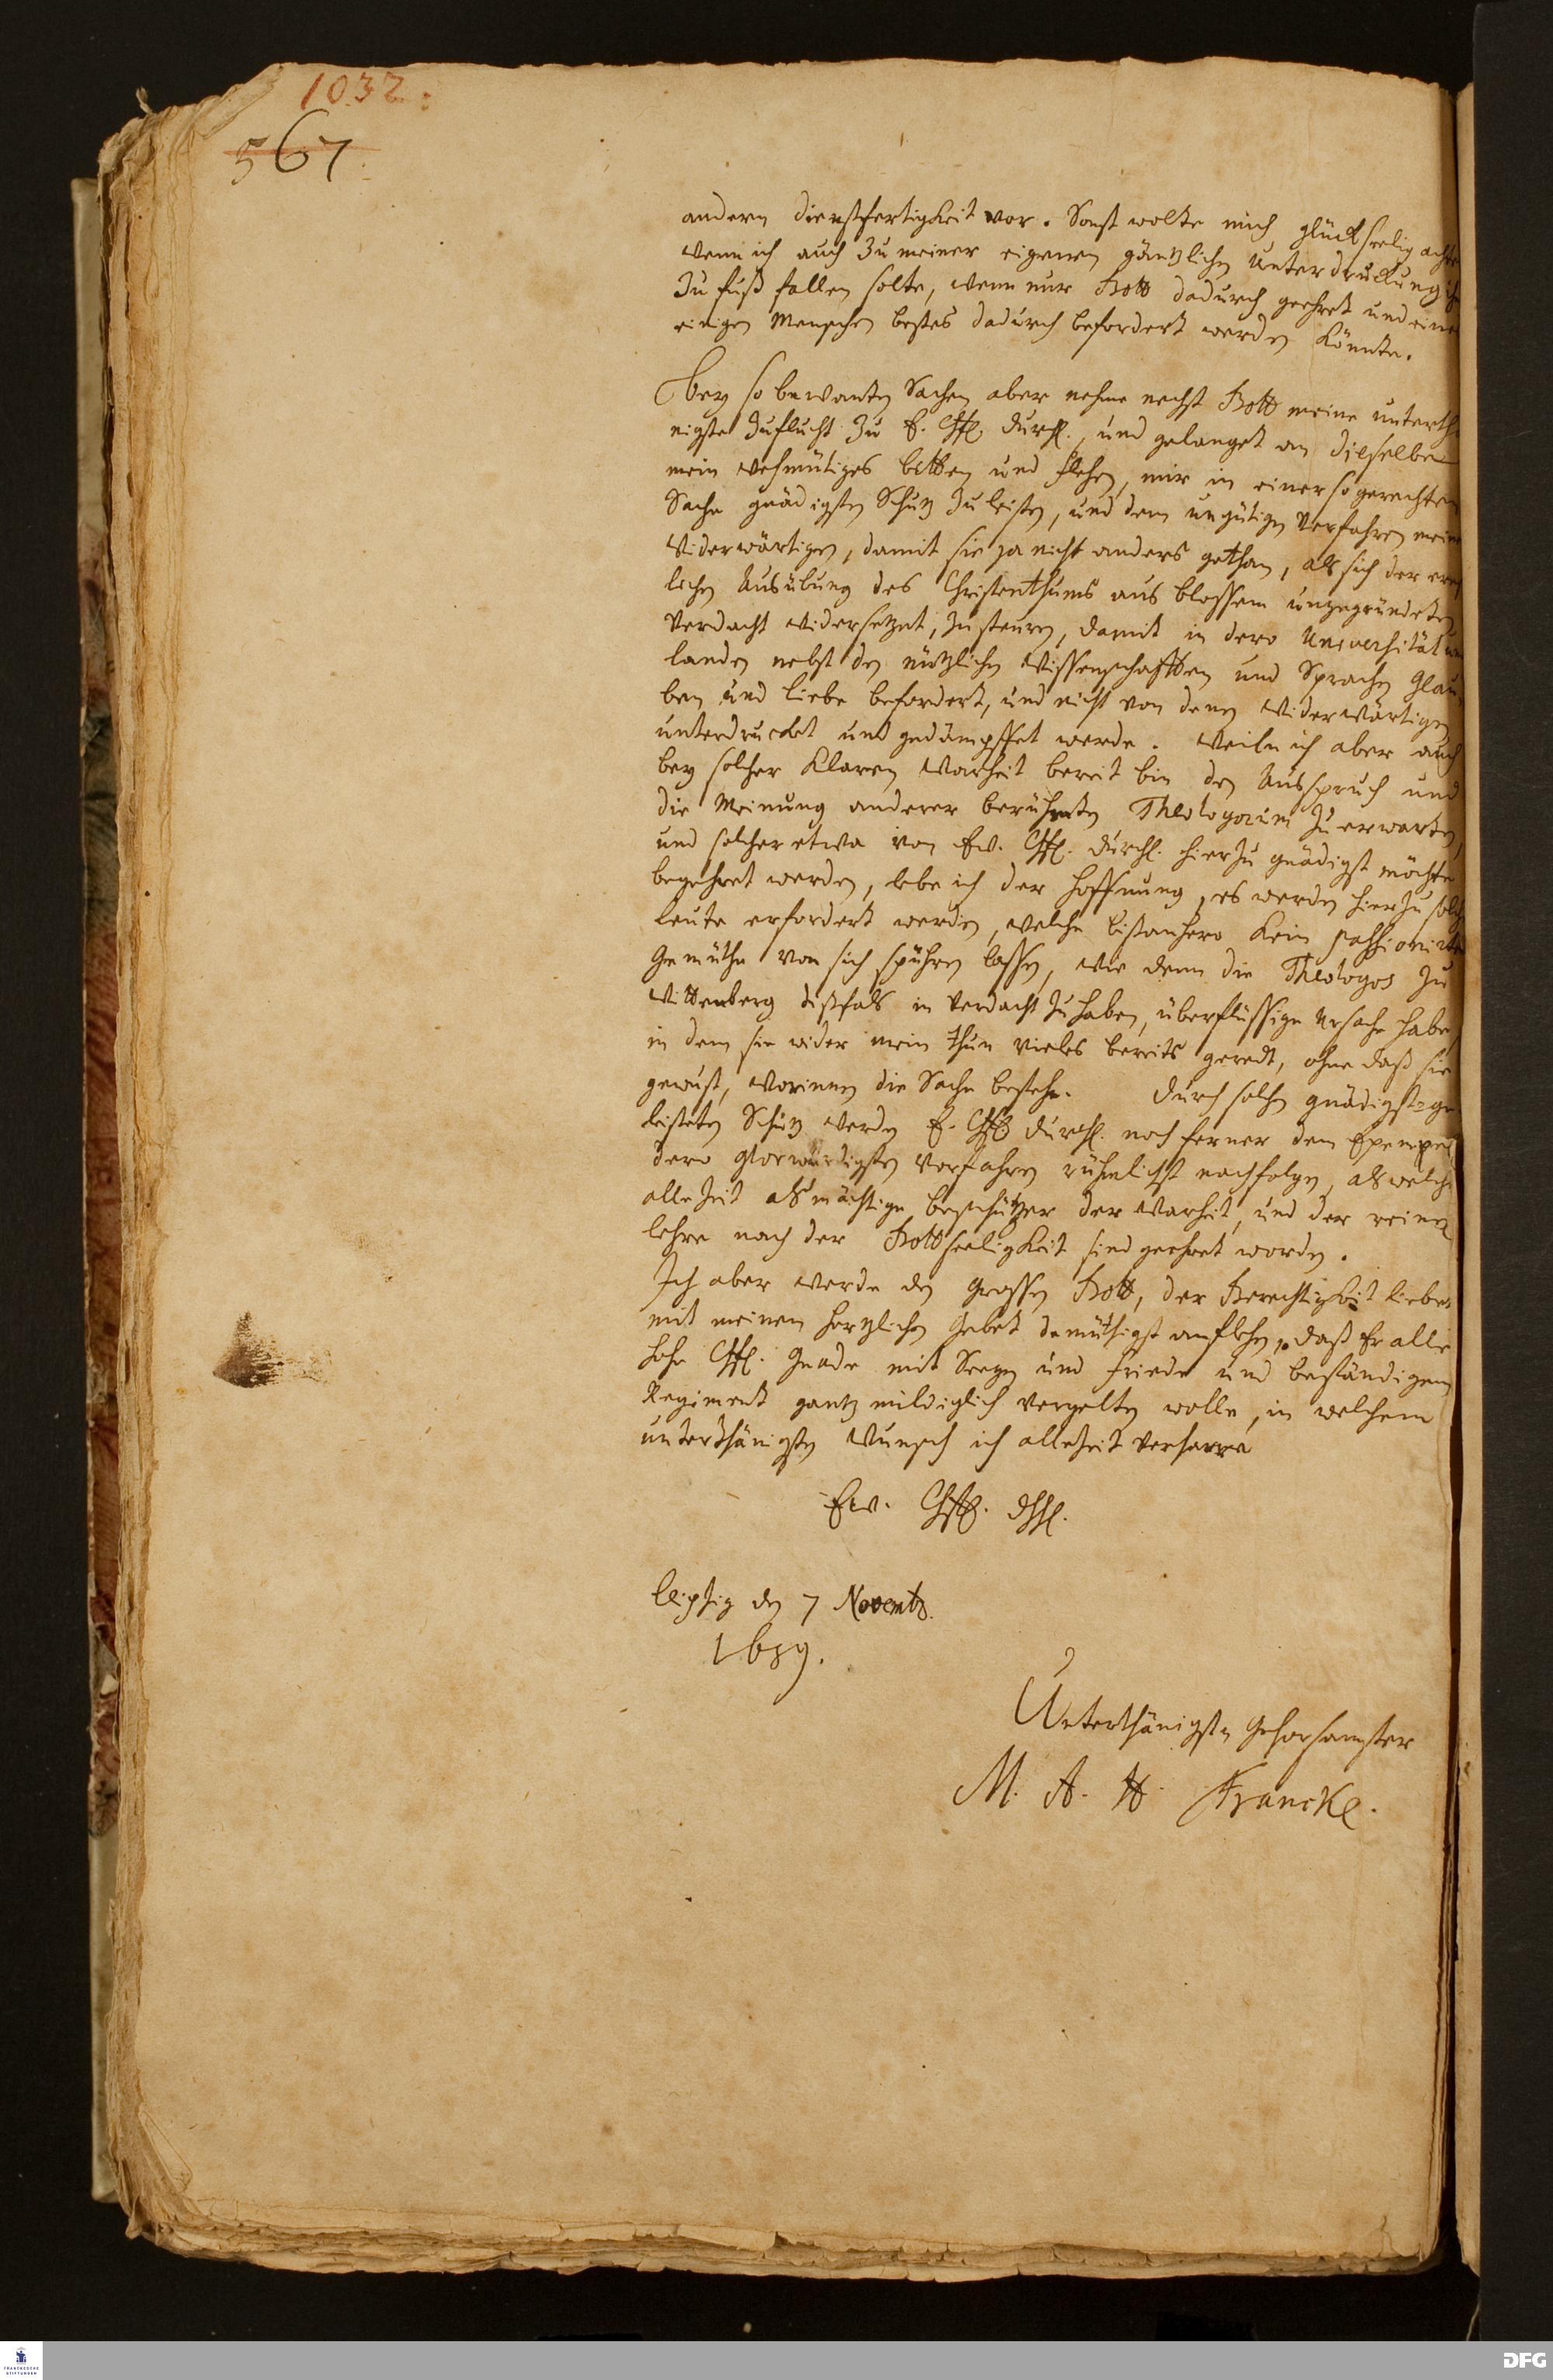 1032.
567
andern dienstfertigkeit vor. Sonst wolte mich glückseelig achte
wenn ich auch zu meiner eigenen gäntzlichen unterdruckung
zu fuß fallen solte, wenn nur Gott dadurch geehret und eine
einigen Menschen bestes dadurch befordert werden könnte.
Bey so bewanten Sachen aber nehme nechst Gott meine unterthä
nigste Zuflucht zu E. Chfl. Durchl., und gelanget an dieselbe
mein wehmütiges bitten und flehen, mir in einer so gerechten
Sache gnädigsten Schutz zu leisten, und dem ungütigen Verfahren meine
Widerwärtigen, damit sie ja nicht anders gethan, als sich der
lichen Ausübung des Christenthums aus blossem ungegründeten
Verdacht widersetzet, zu steuren, damit in dero Universität
landen nebst den nützlichen Wissenschafften und Sprachen Glau
ben und Liebe befordert, und nicht von denen Widerwärtigen
unterdrucket und gedämpffet werde. Weiln ich aber auch
bey solcher klaren Warheit bereit bin den Ausspruch und
die Meinung anderer berühmten Theologorum zu erwarten,
und solcher etwa von Ew. Chfl. Durchl. hierzu gnädigst möchte
begehret werden, lebe ich der Hoffnung, es werden hierzu solche
leute erfordert werden, welche bißanhero kein passionirte
Gemüthe von sich spühren lassen, wie denn die Theologos zu
Wittenberg dißfals in Verdacht zu haben, überflüssige Ursache habe,
in dem sie wider mein thun vieles bereits geredt, ohne daß sie
gewust, worinnen die Sache bestehe. Durch solchen gnädigst ge
leisteten Schutz werden E. Chfl Durchl. noch ferner dem Exempel
dero glorwürdigsten Vorfahren rühmlichst nachfolgen, als welche
alle Zeit als mächtige beschützer der Warheit, und der reinen
lehre nach der Gottseeligkeit sind geehret worden.
Ich aber werde den grossen Gott, der Gerechtigkeit liebet
mit meinem hertzlichen Gebet demüthigst anflehen, daß Er alle
hohe Chfl. Gnade mit Seegen und Friede und beständigem
Regiment gantz mildiglich vergelten wolle, in welchem
unterthänigsten Wunsch ich allezeit verharre
Ew. Chfl. Dhl.
Leipzig den 7 Novemb.
1689.
Unterthänigste gehorsamster
M. A. H. Francke.
FRANCKESCHE
STIFTUNGEN
DFG